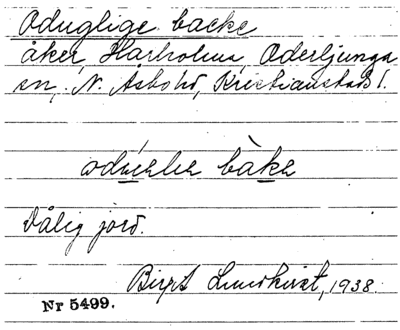 Oduglige backe
åker, Harholma, Oderljunga
sn, N. Åsbo hd, Kristianstads l.
bàkə
Dålig jord.
Birgit Lundkvist, 1938.
Nr 5499.